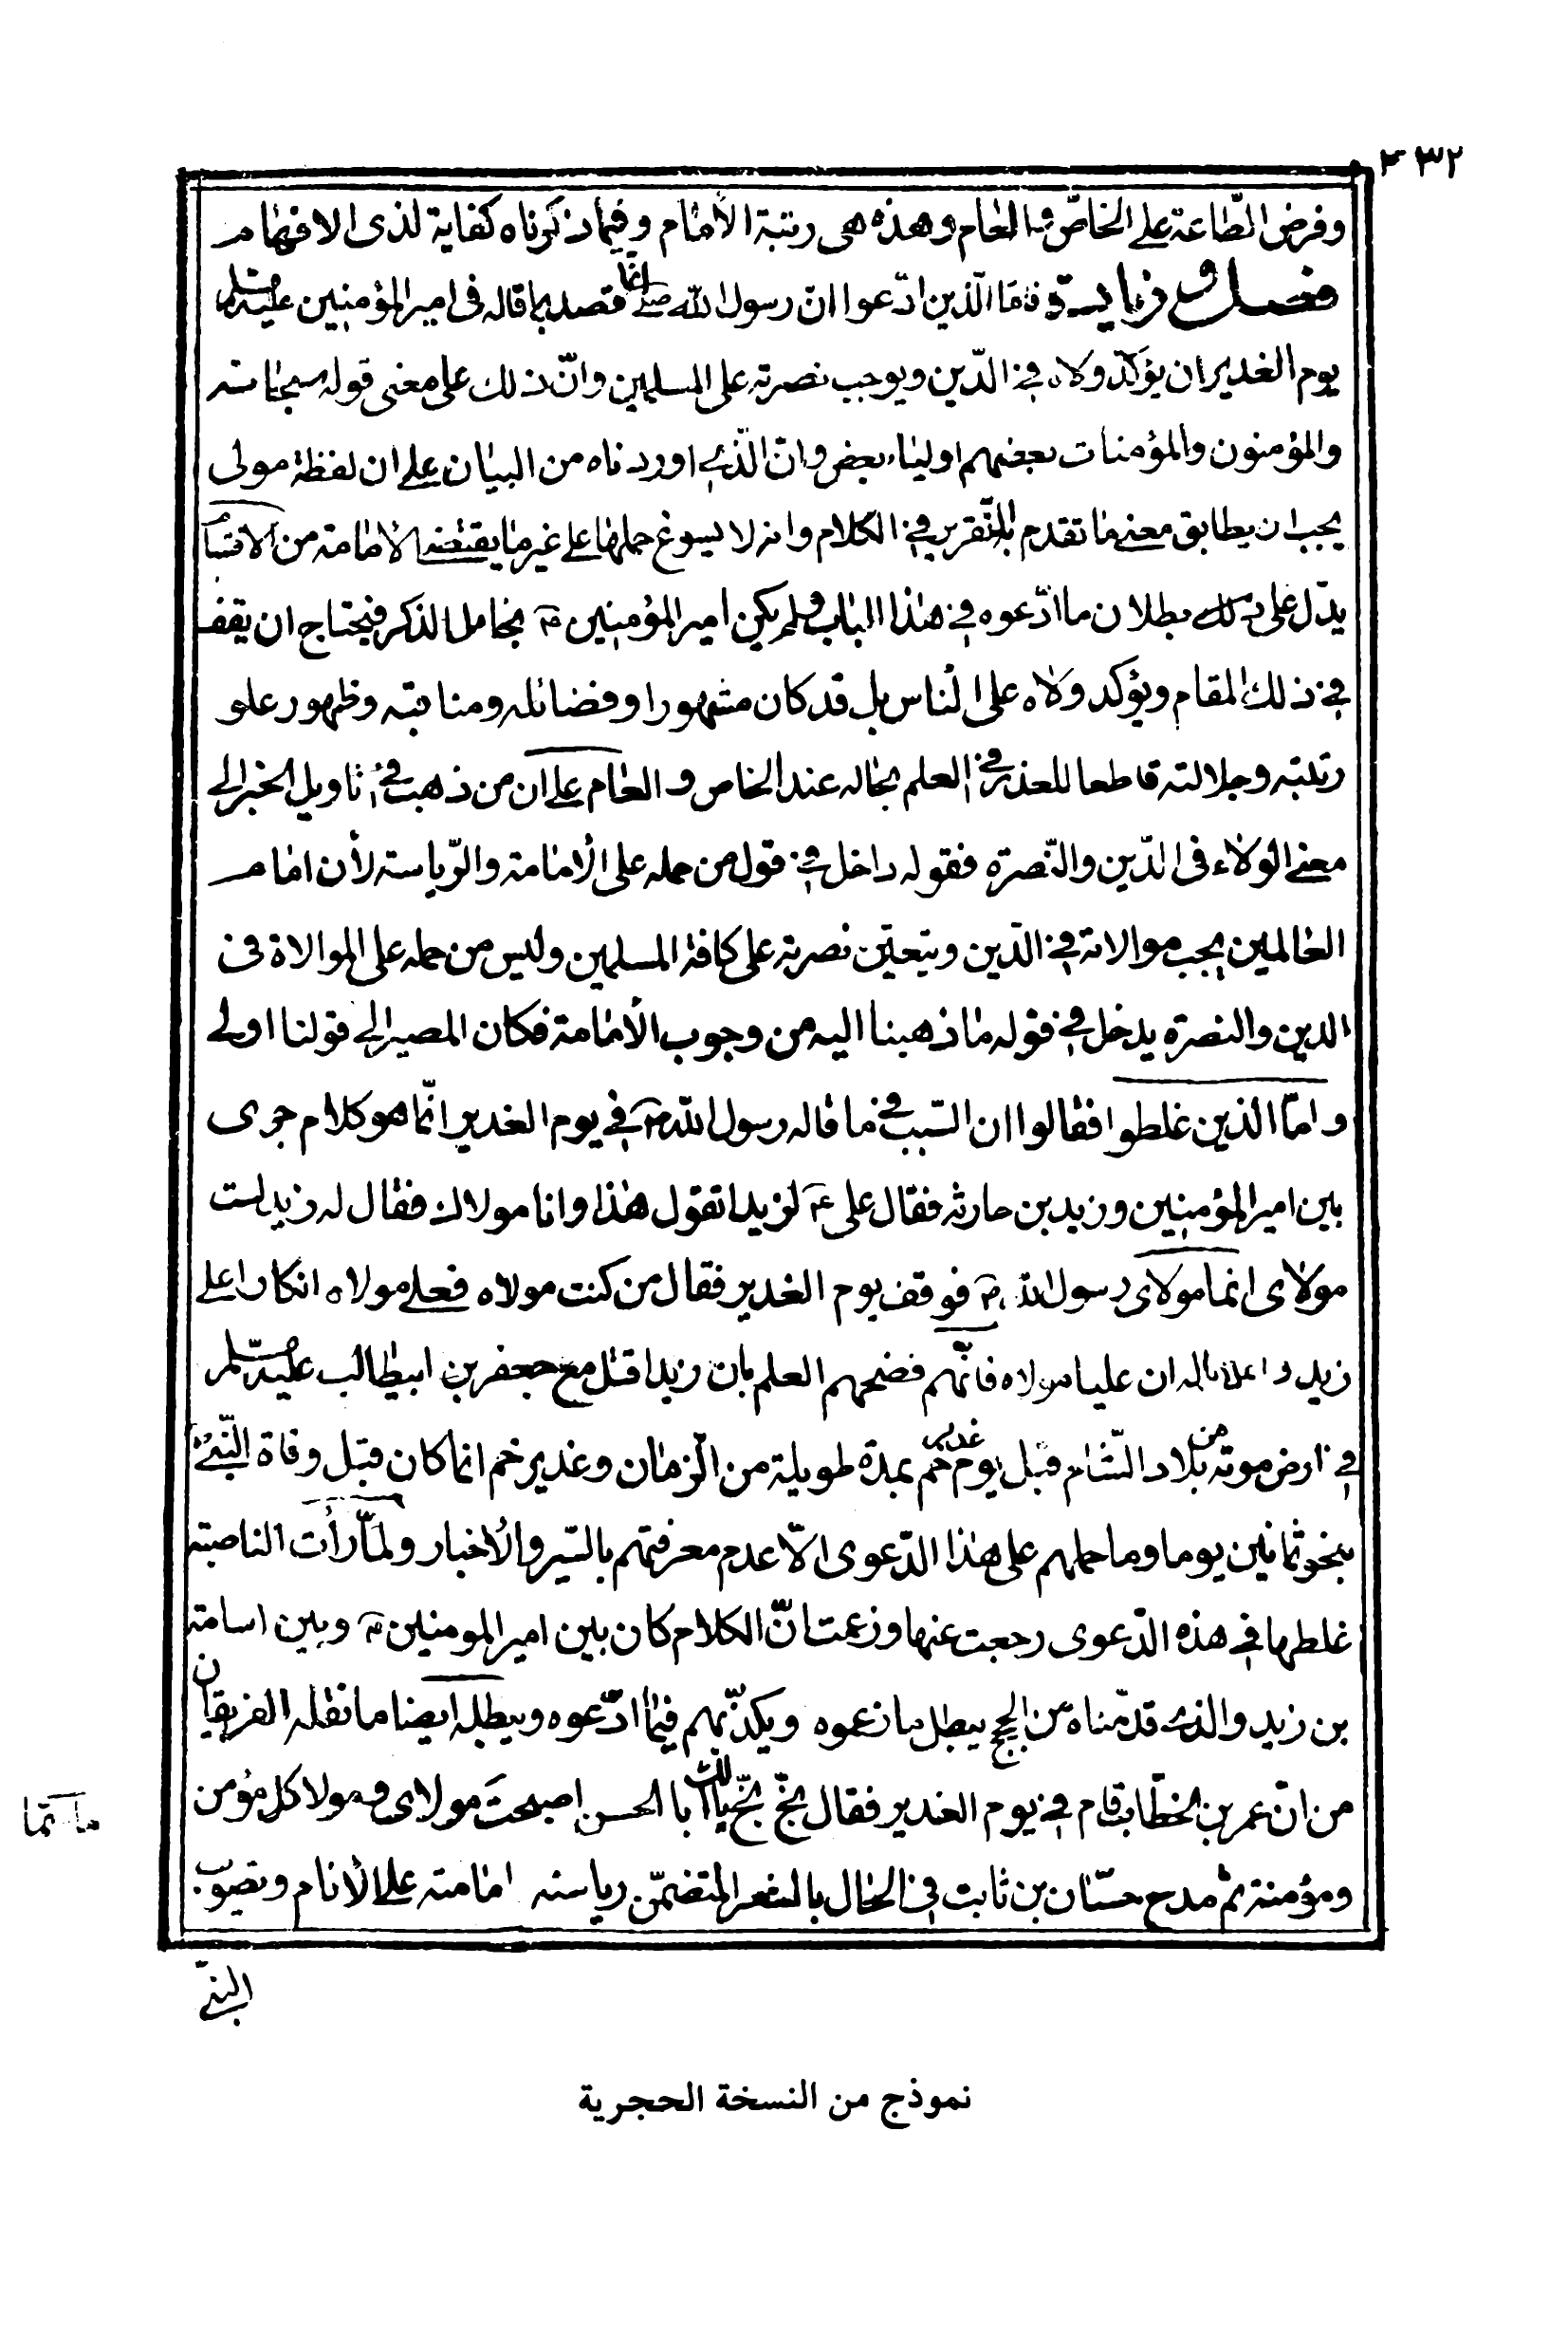 ٢٣٢
وفرض الطّاعة على الخاصّ والعام وهذه هى رتبة الأمام وفيما ذكرناه كفاية لذى الافهام
فصل وزيادة فامّا الّذين ادّعوا انّ رسول اللّه ص انّما قصد بما قاله فى امير المؤمنين عليه السلم
يوم الغدير ان يؤكّد ولاه فى الدّين ويوجب نصرته على المسلمين وانّ ذلك على معنى قوله سبحانه
والمؤمنون والمؤمنات بعضهم اولياء بعض وانّ الّذى اوردناه من البيان على ان لفظة مولى
يجب ان يطابق معنى ما تقدم بالتّقرير فى الكلام وانه لا يسوغ حملها على غير ما يقتضيه الامامة من الاقسام
يدّل على بطلان ما ادّعوه فى هذا الباب ولم يكن امير المؤمنين ع بخامل الذكر فيحتاج ان يقف
فى ذلك المقام ويؤكد ولاه على النّاس بل قد كان مشهورا وفضائله ومناقبه وظهور علو
رتبته وجلالته قاطعا للعذر فى العلم بحاله عند الخاص والعام على ان من ذهب فى تاويل الخبر الى
معنى الولاء فى الدّين والنّصرة فقوله داخل فى قول من حمله على الأمامة والرّياسة لأن امام
العالمين يجب موالاته فى الدّين ويتعيّن نصرته على كافة المسلمين وليس من حمله على الموالاة فى
الدين والنصرة يدخل فى قوله ما ذهبنا اليه من وجوب الأمامة فكان المصير الى قولنا اولى
وامّا الّذين غلطوا فقالوا ان السّبب فى ما قاله رسول اللّه ص فى يوم الغدير انّما هو كلام جرى
بين امير المؤمنين وزيد بن حارثه فقال على ع لزيد اتقول هذا وانا مولاك فقال له زيد لست
مولاى انما مولاى رسول اللّه ص فوقف يوم الغدير فقال من كنت مولاه فعلى مولاه انكارا على
زيد واعلاما له ان عليا مولاه فانّهم فضحهم العلم بان زيدا قتل مع جعفر بن ابيطالب عليه السّلم
فى ارض موته من بلاد الشّام قبل يوم غدير خم بمدّة طويلة من الزمان وغدير خم انما كان قبل وفاة النّبىّ
بنحو ثمانين يوما وما حملهم على هذا الدّعوى الّا عدم معرفتهم بالسّير والأخبار ولمّا رأت الناصبة
غلطها فى هذه الدّعوى رجعت عنها وزعمت انّ الكلام كان بين امير المومنين ع وبين اسامة
بن زيد والذى قدّمناه من الحجج يبطل ما زعموه ويكذّبهم فيما ادّعوه ويبطله ايضا ما نقله الفريقان
من انّ عمر بن الخطّاب قام فى يوم الغدير فقال بخّ بخّ لك يا ابا الحسن اصبحتَ مولاى ومولا كل مؤمن
ومؤمنة ثم مدح حسّان بن ثابت فى الحال بالشعر المتضمّن رياسته امامته على الأنام وتصويب
النبىّ
نموذج من النسخة الحجرية